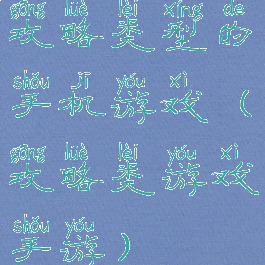 gōng lüè lèi xíng de
攻略类型的
shǒu jī yóu xì
手机游戏（
gōng lüè lèi yóu xì
攻略类游戏
shǒu yóu
手游）